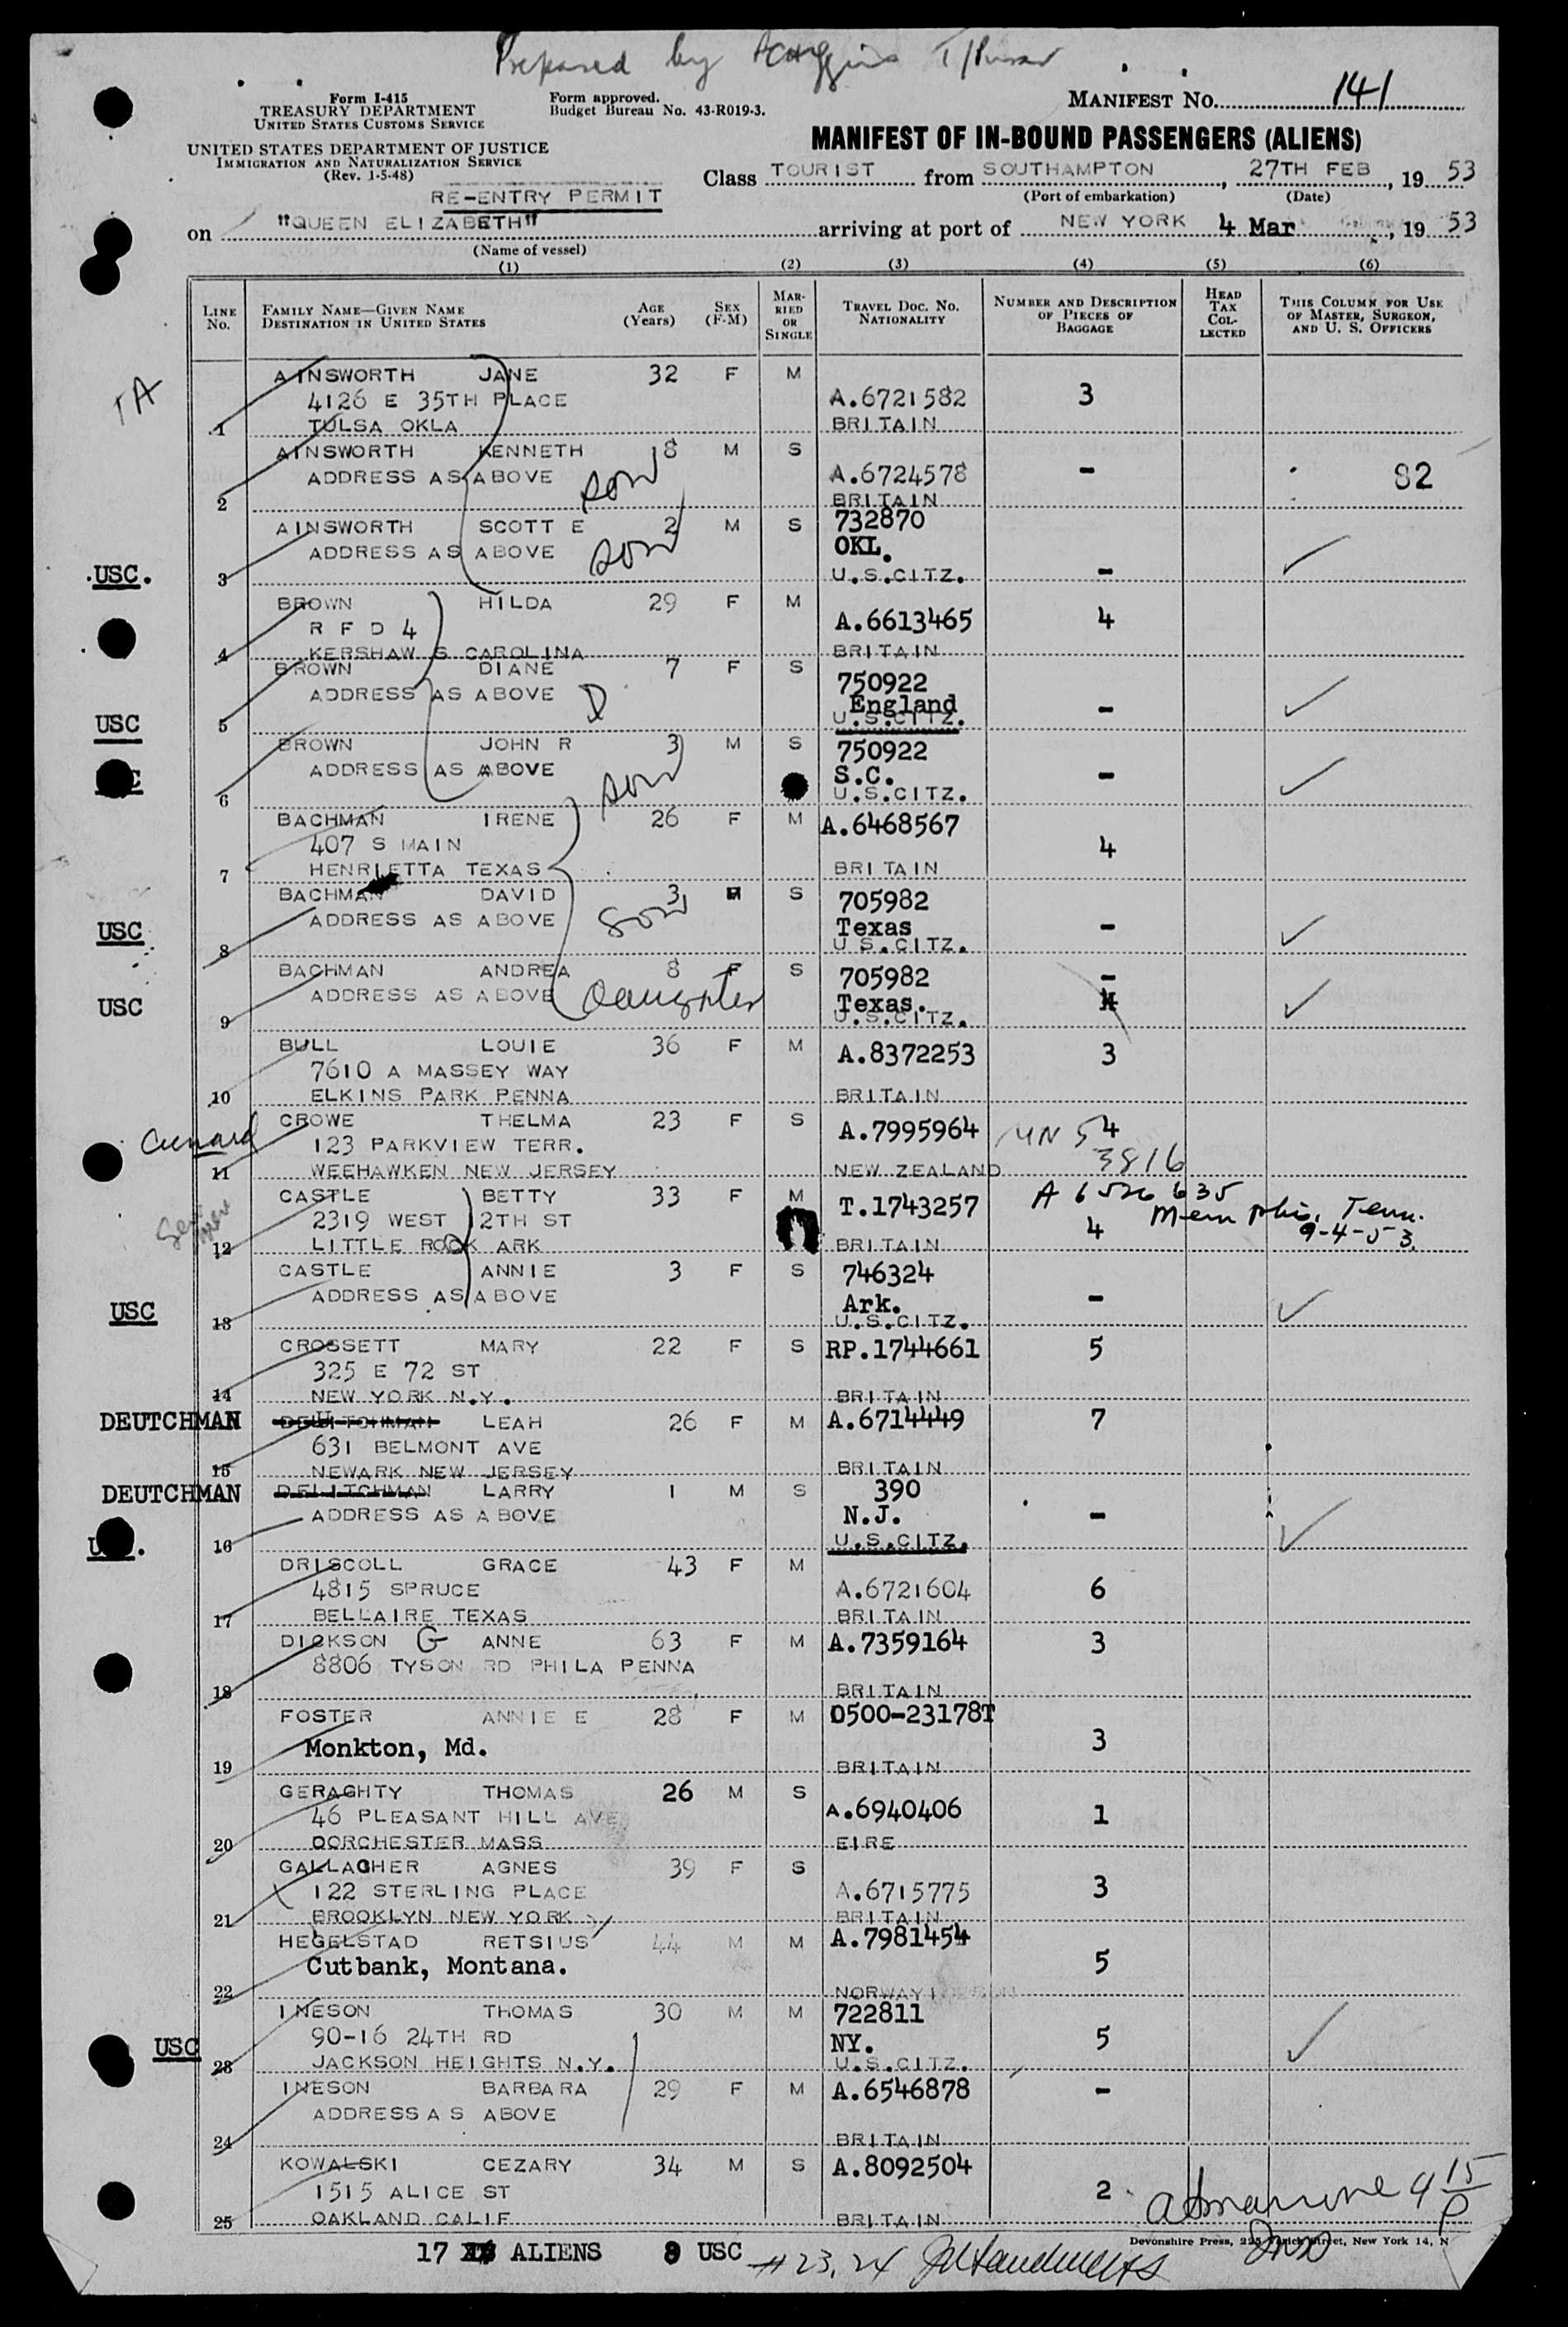 Prepared by
Form I-415
TREASURY DEPARTMENT
UNITED STATES CUSTOMS SERVICE
UNITED STATES DEPARTMENT OF JUSTICE
IMMIGRATION AND NATURALIZATION SERVICE
(Rev. 1-5-48)
Form approved.
Budget Bureau No. 43-R019-3.
MANIFEST NO. 141
MANIFEST OF IN-BOUND PASSENGERS (ALIENS)
Class TOURIST from SOUTHAMPTON, 27TH FEB, 19 53
(Port of embarkation) (Date)
RE-ENTRY PERMIT
on "QUEEN ELIZABETH" arriving at port of NEW YORK 4 Mar, 19 53
(Name of vessel)
(1) (2) (3) (4) (5) (6)
LINE No. FAMILY NAME—GIVEN NAME DESTINATION IN UNITED STATES AGE (Years) SEX (F-M) MARRIED OR SINGLE TRAVEL DOC. NO. NATIONALITY NUMBER AND DESCRIPTION OF PIECES OF BAGGAGE HEAD TAX COLLECTED THIS COLUMN FOR USE OF MASTER, SURGEON, AND U. S. OFFICERS
TA
AINSWORTH JANE 32 F M
4126 E 35TH PLACE A.6721582 3
1 TULSA OKLA BRITAIN
AINSWORTH KENNETH 8 M S
ADDRESS AS ABOVE son A.6724578 - 82
2 BRITAIN
AINSWORTH SCOTT E 2 M S 732870
ADDRESS AS ABOVE son OKL.
USC. 3 U.S.CITZ. - ✓
BROWN HILDA 29 F M
R F D 4 A.6613465 4
4 KERSHAW S CAROLINA BRITAIN
BROWN DIANE 7 F S 750922
ADDRESS AS ABOVE D England - ✓
USC 5 U.S.CITZ.
BROWN JOHN R 3 M S 750922
ADDRESS AS ABOVE son S.C. - ✓
6 U.S.CITZ.
BACHMAN IRENE 26 F M A.6468567
407 S MAIN 4
7 HENRIETTA TEXAS BRITAIN
BACHMAN DAVID 3 M S 705982
ADDRESS AS ABOVE son Texas - ✓
USC 8 U.S.CITZ.
BACHMAN ANDREA 8 F S 705982 -
ADDRESS AS ABOVE Daughter Texas. ✓
USC 9 U.S.CITZ.
BULL LOUIE 36 F M A.8372253 3
7610 A MASSEY WAY
10 ELKINS PARK PENNA BRITAIN
Cunard CROWE THELMA 23 F S A.7995964 4
123 PARKVIEW TERR. 3816
11 WEEHAWKEN NEW JERSEY NEW ZEALAND
CASTLE BETTY 33 F M T.1743257 A 6526635
2319 WEST 12TH ST 4 Memphis, Tenn.
12 LITTLE ROCK ARK BRITAIN 9-4-53.
CASTLE ANNIE 3 F S 746324
ADDRESS AS ABOVE Ark. - ✓
USC 13 U.S.CITZ.
CROSSETT MARY 22 F S RP.1744661 5
325 E 72 ST
14 NEW YORK N.Y. BRITAIN
DEUTCHMAN LEAH 26 F M A.6714449 7
631 BELMONT AVE
15 NEWARK NEW JERSEY BRITAIN
DEUTCHMAN DELITCHMAN LARRY 1 M S 390
ADDRESS AS ABOVE N.J. - ✓
16 U.S.CITZ.
DRISCOLL GRACE 43 F M
4815 SPRUCE A.6721604 6
17 BELLAIRE TEXAS BRITAIN
DICKSON G ANNE 63 F M A.7359164 3
8806 TYSON RD PHILA PENNA
18 BRITAIN
FOSTER ANNIE E 28 F M 0500-23178T
Monkton, Md. 3
19 BRITAIN
GERAGHTY THOMAS 26 M S
46 PLEASANT HILL AVE A.6940406 1
20 DORCHESTER MASS EIRE
GALLAGHER AGNES 39 F S
122 STERLING PLACE A.6715775 3
21 BROOKLYN NEW YORK BRITAIN
HEGELSTAD RETSIUS 44 M M A.7981454
Cutbank, Montana. 5
22 NORWAY
INESON THOMAS 30 M M 722811
USC 90-16 24TH RD NY. 5 ✓
23 JACKSON HEIGHTS N.Y. U.S.CITZ.
INESON BARBARA 29 F M A.6546878 -
ADDRESS AS ABOVE
24 BRITAIN
KOWALSKI CEZARY 34 M S A.8092504
1515 ALICE ST 2
25 OAKLAND CALIF BRITAIN
Devonshire Press, 225 Varick Street, New York 14, N
17 ALIENS 8 USC #23, 24